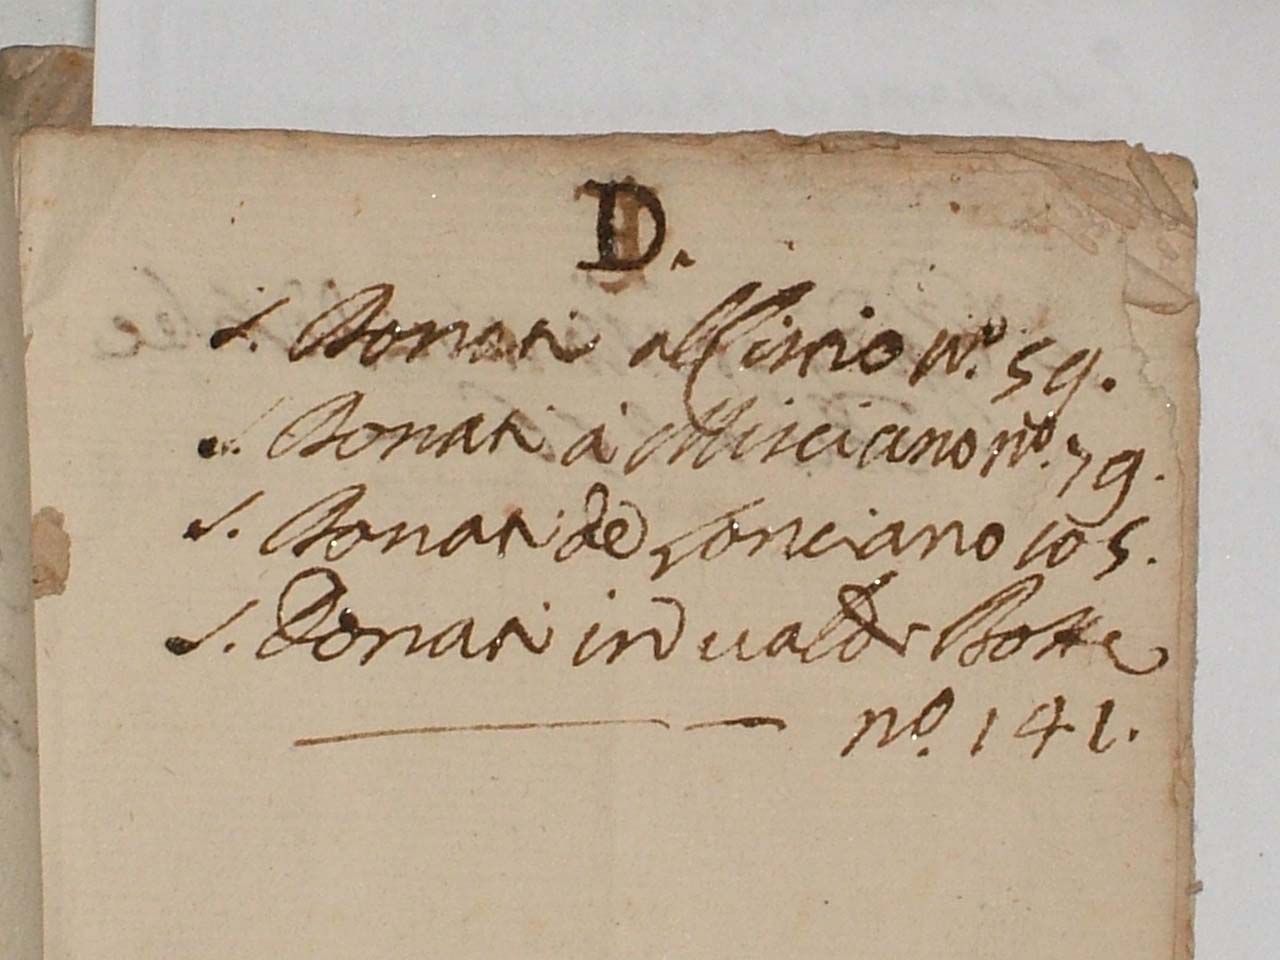 D.
S. Donati all'Isirio nº. 59.
S. Donati à Misciano nº. 79.
S. Donati de Lonciano 105.
S. Donati in ualdi Botte
nº. 141.